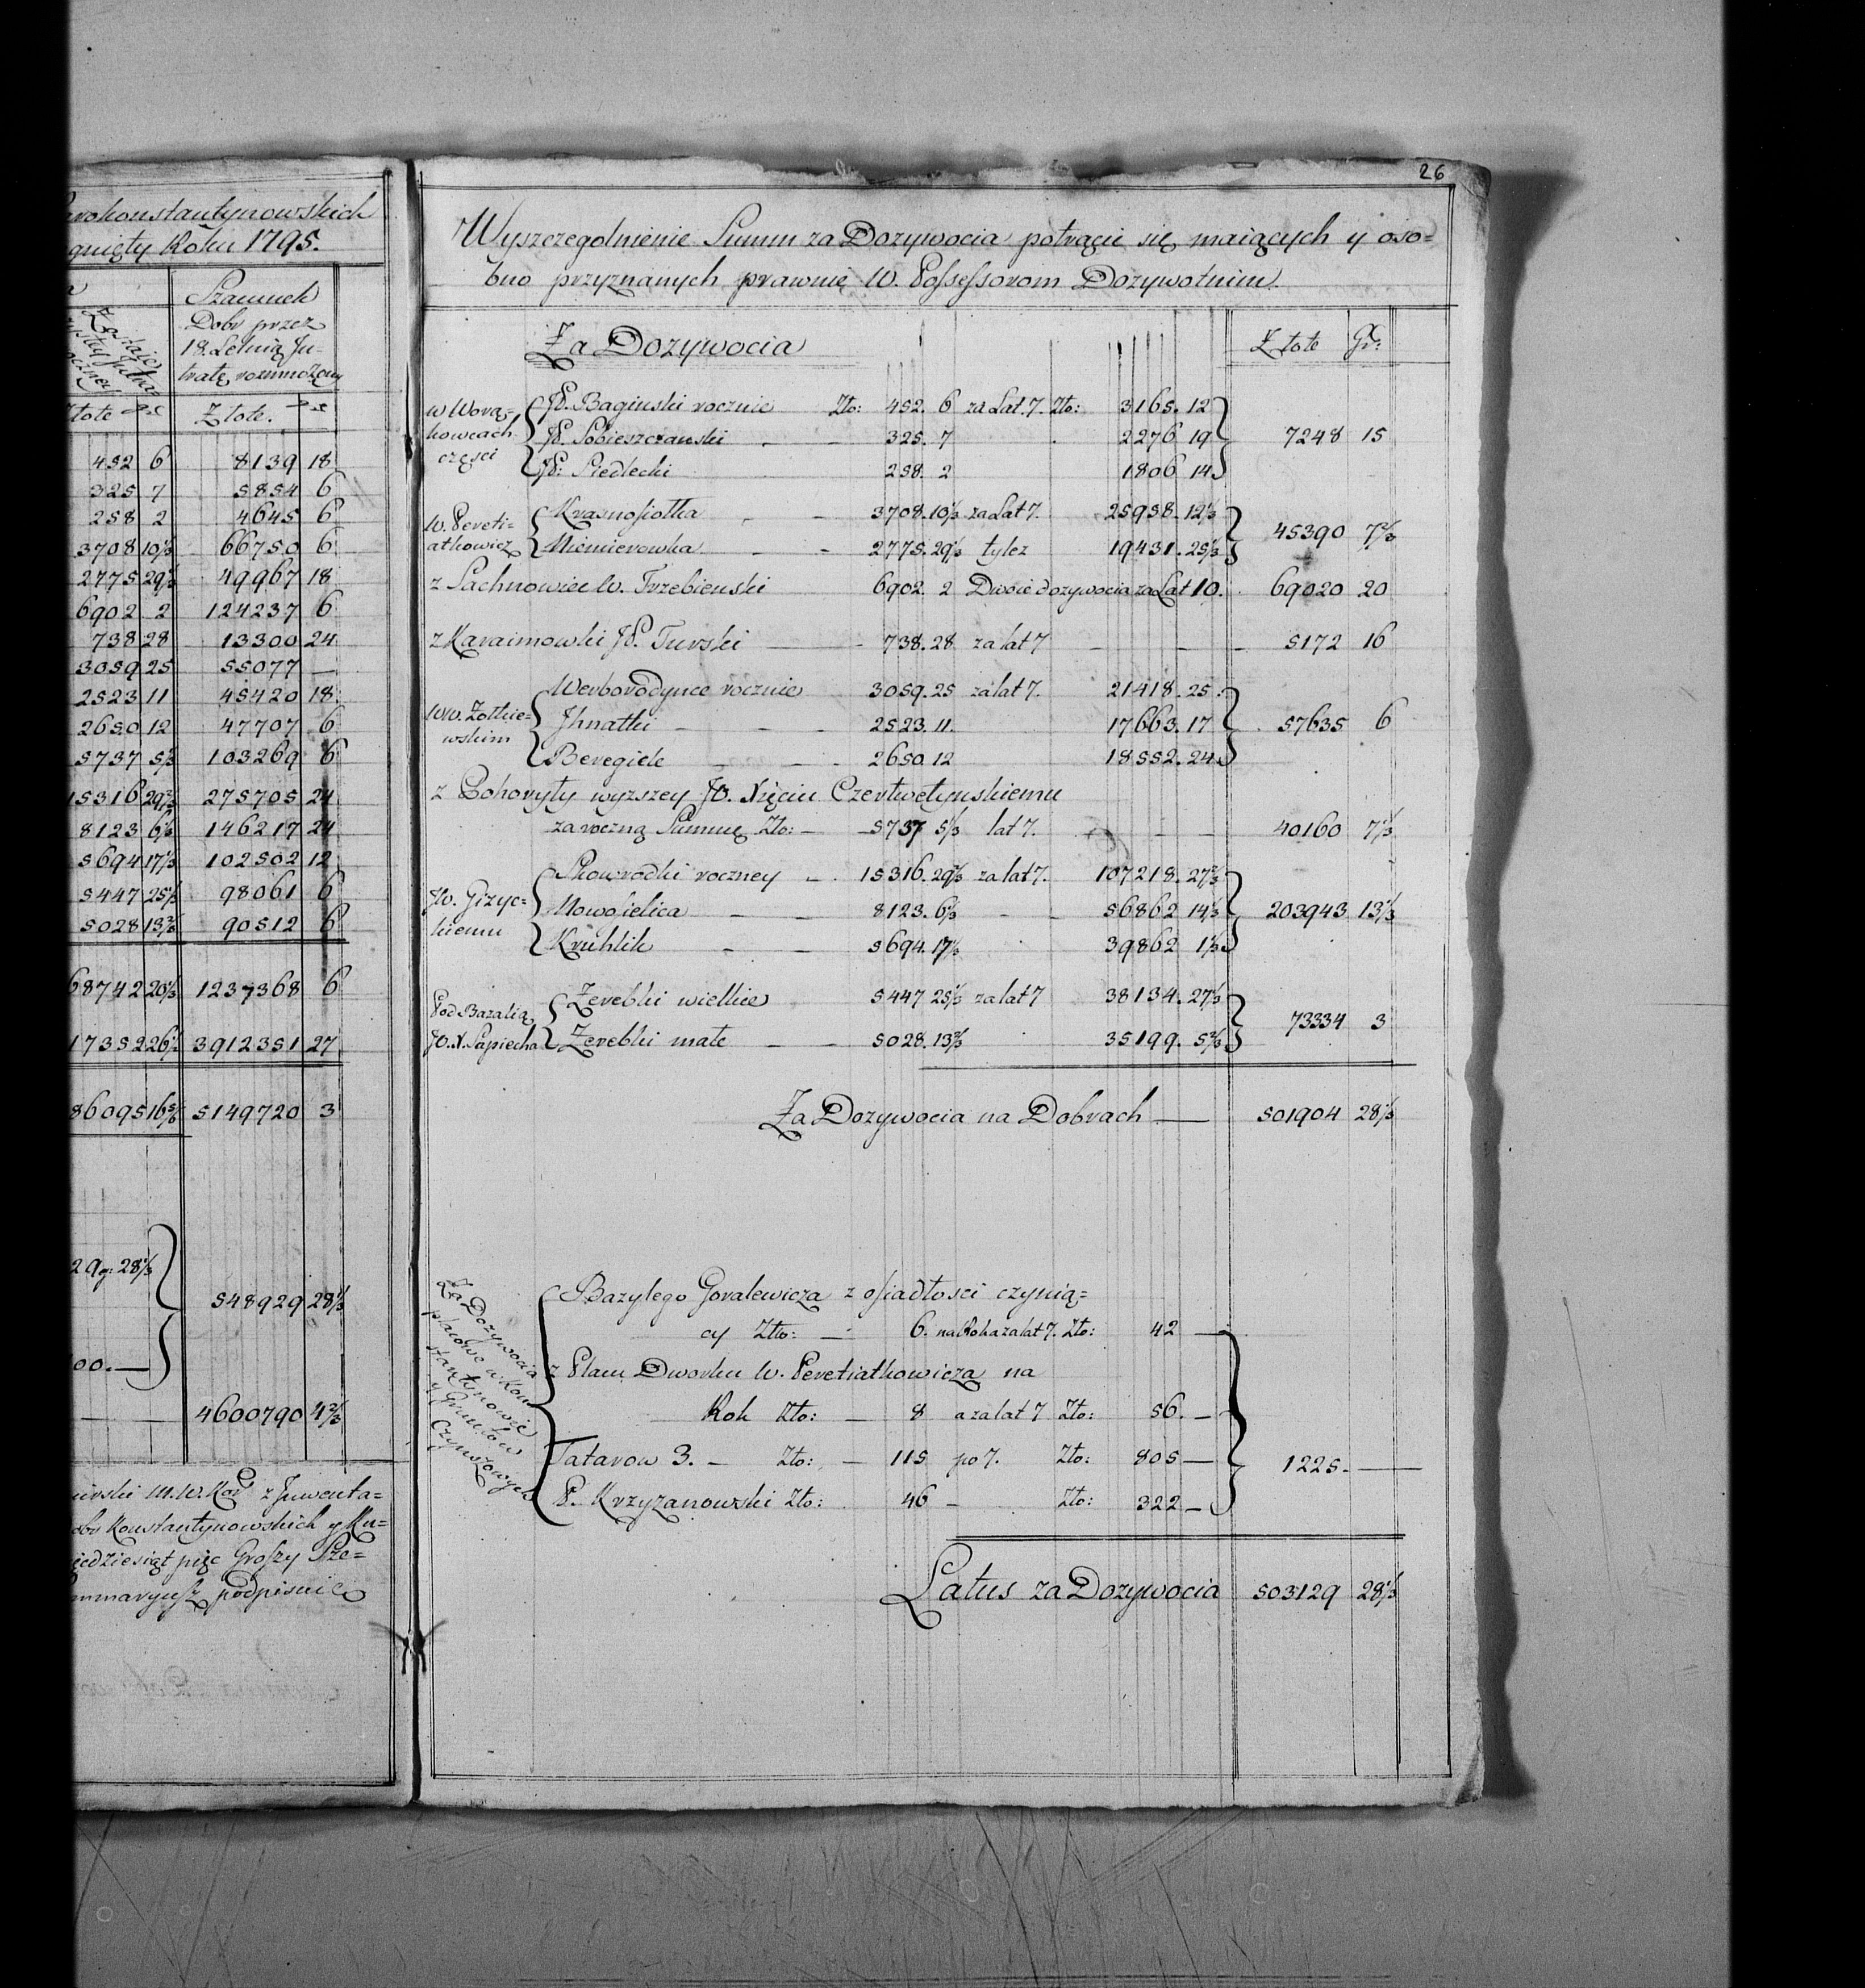 arokonstantynowskich
gnięty Roku 1795.
Szacunek
Dobr przez
18. Letnią In-
tratę rozmnożony
Złote gr Złote. gr
452 6 8139 18
325 7 5854 6
258 2 4645 6
3708 10 1/3 66750 6
2775 29 1/3 49967 18
6902 2 124237 6
738 28 13300 24
3059 25 55077 —
2523 11 45420 18
2650 12 47707 6
5737 5/3 103269 6
15316 29 2/3 275705 24
8123 6 1/3 146217 24
5694 17 1/3 102502 12
5447 25 1/3 98061 6
5028 13 2/3 90512 6
68742 20 1/3 1237368 6
17352 26 1/2 3912351 27
86095 16 5/6 5149720 3
29 g: 28 1/3
548929 28 1/3
00. —
— — 4600790 4 2/3
z Inwenta=
Konstantynowskich y Ku=
iędziesiąt pięc Groszy Sze=
mmaryusz podpisuię
26
Wyszczegolnienie Summ za Dozywocia potrącic się maiących y oso=
bno przyznanych prawnie W. Possessorom Dozywotnim.
Za Dozywocia Złote Gr:
w Worą=
kowcach
częsci
JP. Baginski rocznie Zło: 452. 6 za Lat. 7. Zło: 3165. 12
JP. Sobieszczanski 325. 7 2276 19 7248 15
JP: Siedlecki 258. 2 1806 14
W. Pereti=
atkowicz
Krasnosiołka 3708. 10 1/3 za Lat 7. 25958. 12 1/3
Niemierowka 2775. 29 1/3 tylez 19431. 25 1/3 45390 7 2/3
z Lachnowiec W. Trzebienski 6902. 2 Dwoie dozywocia za Lat 10. 69020 20
z Karaimowki JP. Turski — 738. 28 za lat 7 — — — 5172 16
WW. Zołkie=
wskim
Werborodynce rocznie 3059. 25 za lat 7. 21418. 25
Ihnatki — — — 2523. 11. 17663. 17 57635 6
Beregiele — — 2650. 12 18552. 24
z Pohoryły wyzszey JO. Xięciu Czertwetynskiemu
za roczną Summę Zło: — 5737 5/3 lat 7. — — 40160 7 1/3
JW. Gizyc=
kiemu
Skowrodki roczney — 15316. 29 2/3 za lat 7. 107218. 27 2/3
Nowosielica — — 8123. 6 1/3 — — 56862 14 1/3 203943 13 1/3
Kruhlik — — 5694. 17 1/3 39862 1 1/3
Pod Bazalią
JO. X. Sapiecha
Zerebki wielkie 5447 25 1/3 za lat 7 38134. 27 1/3
Zerebki małe — — 5028. 13 2/3 35199. 5 2/3 73334 3
Za Dozywocia na Dobrach — 501904 28 1/3
Za Dozywocia
placowe w Kon
stantynowie
y Gruntow
Czynszowych
Bazylego Goralewicza z osiadłosci czynią=
cy Zło: — 6. na Roka za lat 7. Zło: 42 —
z Placu Dworku W. Peretiatkowicza na
Rok Zło: — 8 a za lat 7 Zło: 56. —
Tatarow 3. — Zło: — 115 po 7. Zło: 805 — 1225. —
P. Krzyzanowski Zło: 46 — Zło: 322 —
Latus za Dozywocia 503129 28 1/3